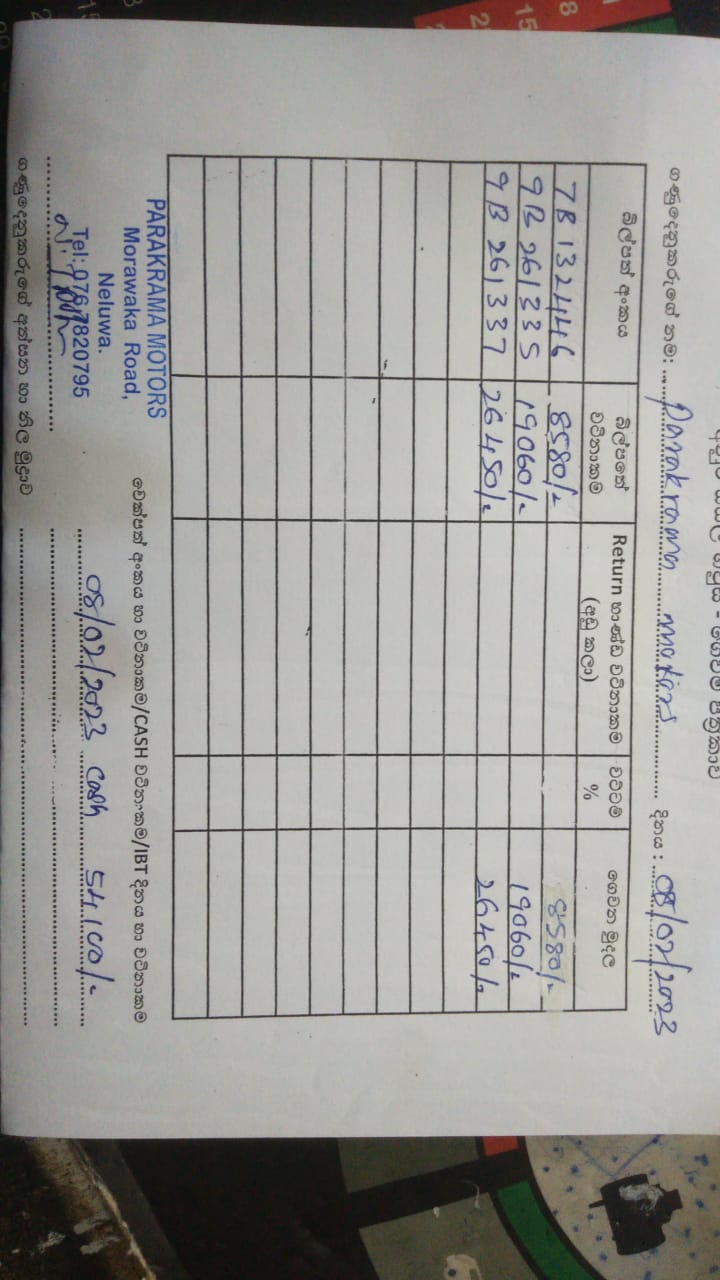 ගණුදෙනුකරුගේ නම: Parakrama motors දිනය: 08/02/2023
බිල්පත් අංකය බිල්පතේ වටිනාකම Return භාණ්ඩ වටිනාකම (අඩු කලා) වට්ටම් % ගෙවන මුදල
7B132446 8580/- 8580/-
9B 261335 19060/- 19060/-
9B 261337 26450/- 26450/-
PARAKRAMA MOTORS
Morawaka Road,
Neluwa.
Tel: 076 7820795
චෙක්පත් අංකය හා වටිනාකම/CASH වටිනාකම/IBT දිනය හා වටිනාකම
08/02/2023 cash 54100/-
ගණුදෙනුකරුගේ අත්සන හා නිල මුද්‍රාව